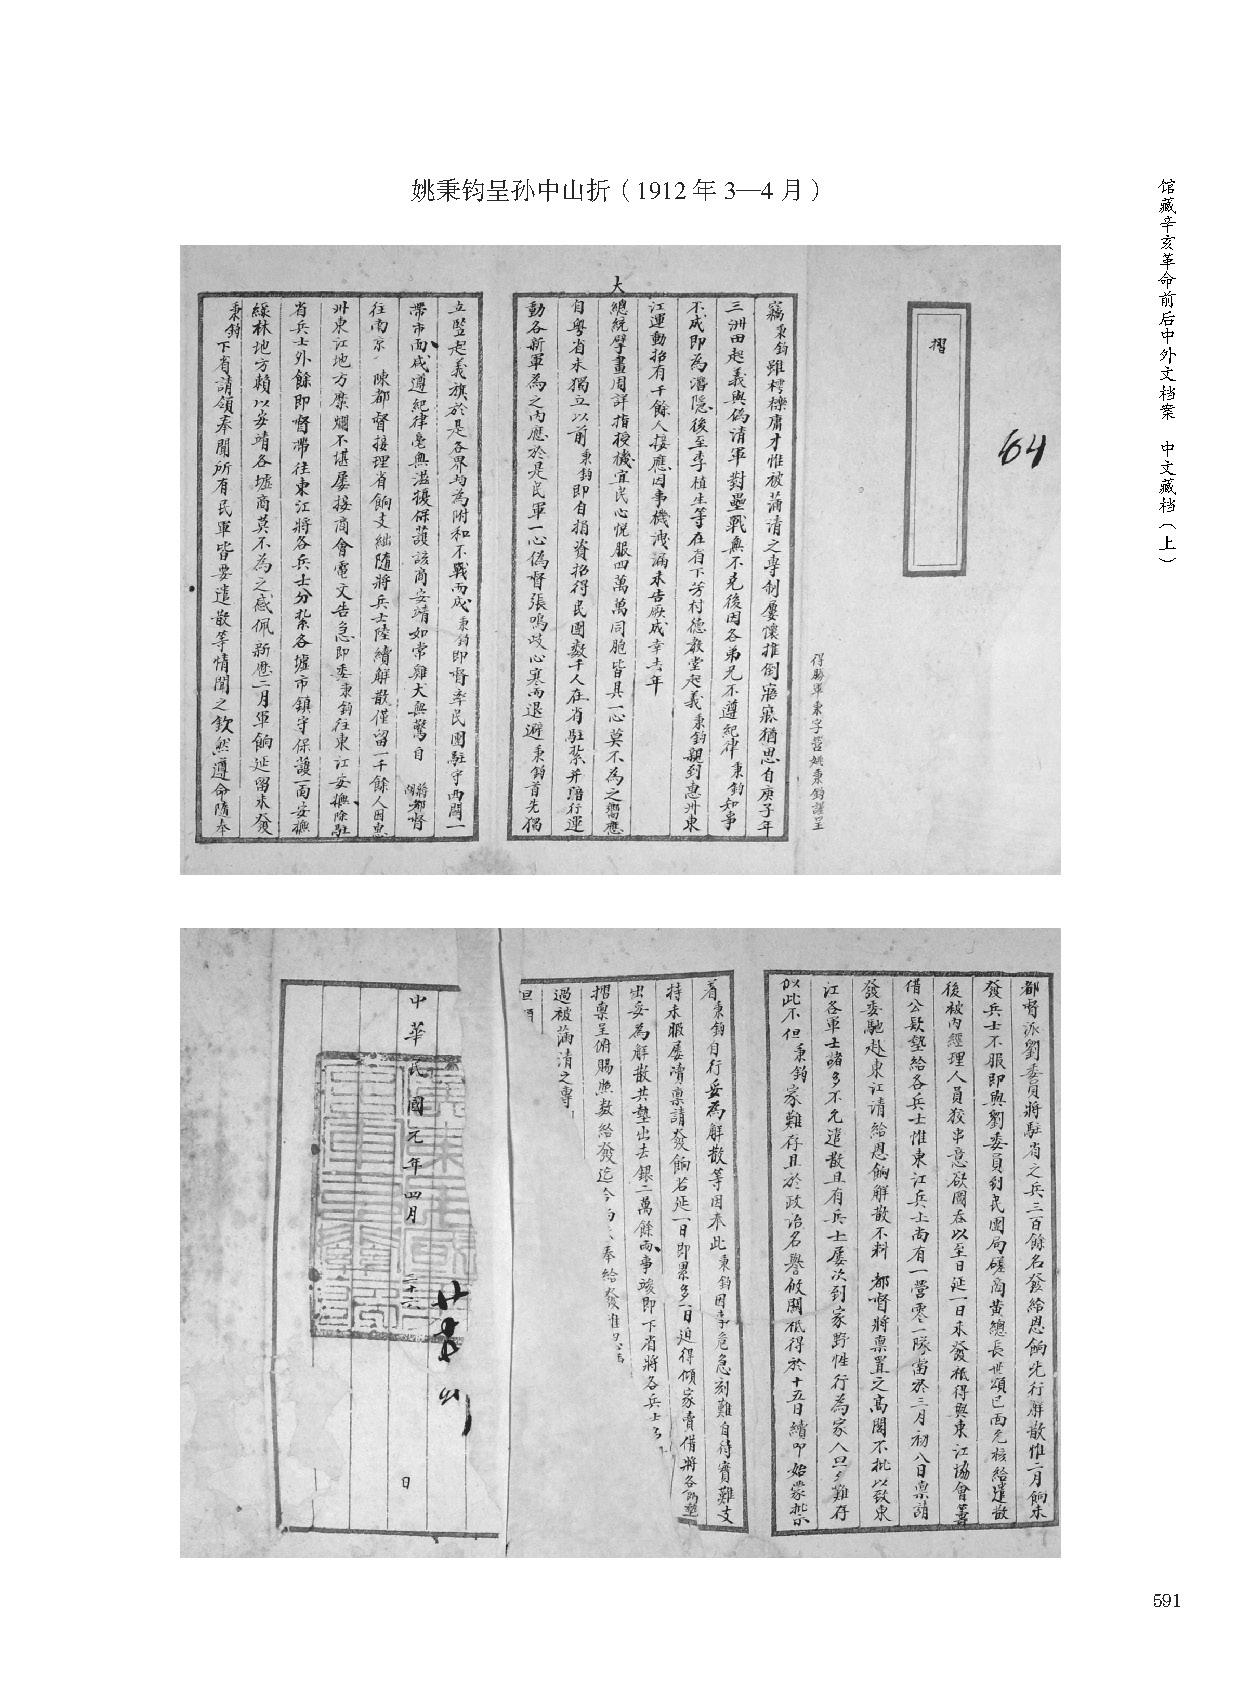 姚秉钧呈孙中山折（1912 年 3—4 月）
馆藏辛亥革命前后中外文档案 中文藏档（上）
摺
64
得勝軍秉字營姚秉鈞謹呈
竊秉鈞雖樗櫟庸才惟被滿清之專制屢懷推倒寤寐猶思自庚子年
三洲田起義與偽清軍對壘戰無不克後因各弟兄不遵紀律秉鈞知事
不成即為潛隱後至李植生等在省下芳村德教堂起義秉鈞親到惠州東
江運動招有千餘人接應因事機洩漏未告厥成幸去年
大
總統擘畫周詳指授機宜民心悅服四萬萬同胞皆具一心莫不為之嚮應
自粵省未獨立以前秉鈞即自捐資招得民團數千人在省駐紮并暗行運
動各新軍為之內應於是民軍一心偽督張鳴岐心寒而退避秉鈞首先獨
立豎起義旗於是各界均為附和不戰而成秉鈞即督率民團駐守西關一
帶市面咸遵紀律毫無滋擾保護該商安靖如常雞犬無驚自 將都督
往南京 陳都督接理省餉支絀隨將兵士陸續解散僅留一千餘人因惠
州東江地方糜爛不堪屢接商會電文告急即委秉鈞往東江安撫除駐
省兵士外餘即督帶往東江將各兵士分紮各墟市鎮守保護一面安撫
綠林地方賴以安靖各墟商莫不為之感佩新歷二月軍餉延留未發
秉鈞下省請領奉聞所有民軍皆要遣散等情聞之欽然遵命隨奉
都督派劉委員將駐省之兵三百餘名發給恩餉先行解散惟二月餉未
發兵士不服即與劉委員到民團局磋商黃總長世頌已面允核給遣散
後被內經理人員狡串意欲圖吞以至日延一日未發祇得與東江協會籌
借公款墊給各兵士惟東江兵士尚有一營零一隊當於三月初八日稟請
發委馳赴東江請給恩餉解散不料 都督將稟置之高閣不批以致東
江各軍士諸多不允遣散且有兵士屢次到家野性行為家人旦夕難存
似此不但秉鈞家難存且於政治名譽攸關祇得於十五日續叩始蒙批示
着秉鈞自行妥為解散等因奉此秉鈞因事危急刻難自待實難支
持未服屢瀆稟請發餉若延一日即累多一日迫得傾家賣借將各餉墊
出妥為解散共墊出去銀二萬餘両事竣即下省將各兵士
摺稟呈俯賜照数給發迄今 奉給發惟
過被滿清之專
但須
中華民國元年四月二十六 日
591